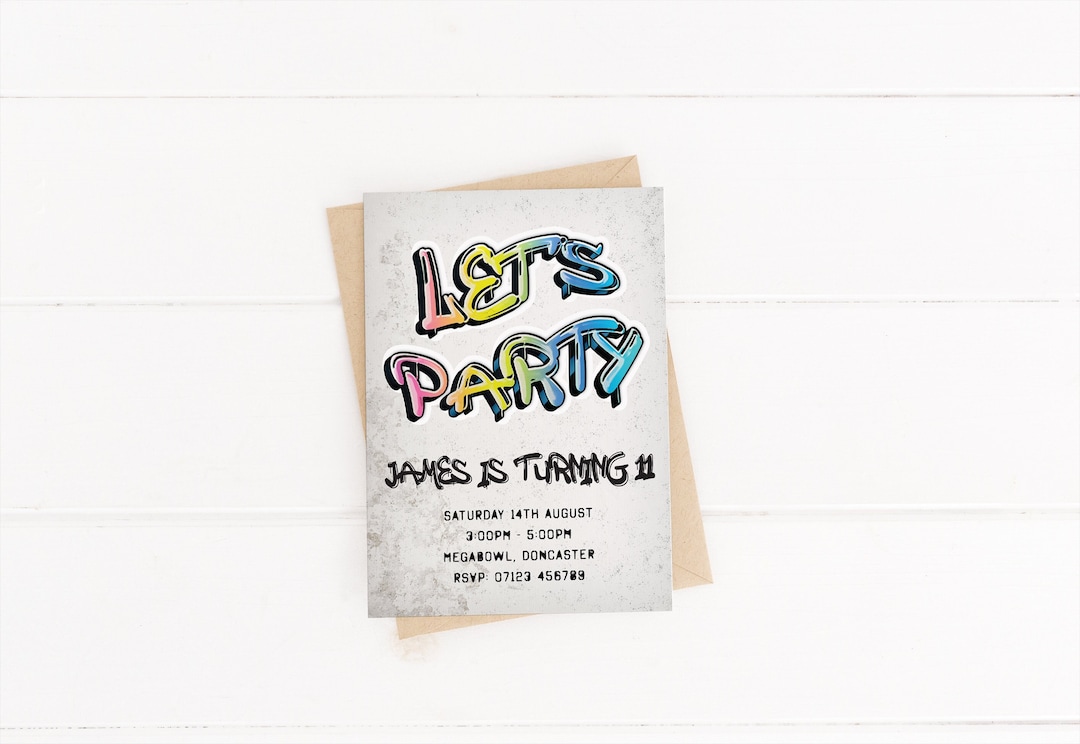 LET'S
PARTY
JAMES IS TURNING 11
SATURDAY 14TH AUGUST
3:00PM - 5:00PM
MEGABOWL, DONCASTER
RSVP: 07123 456789